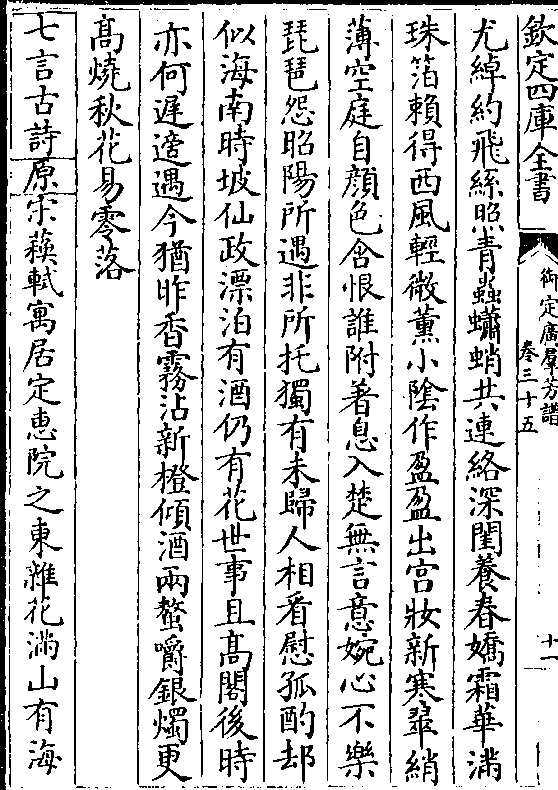 欽定四庫全書
御定廣羣芳譜
卷三十五
十一
尤綽約飛絲照青蟲蠨蛸共連絡深閨養春嬌霜華滿
珠箔賴得西風輕微薰小陰作盈盈出宫妝新寒翠綃
薄空庭自顔色含恨誰附著息入楚無言意婉心不樂
琵琶怨昭陽所遇非所托獨有未歸人相看慰孤酌却
似海南時坡仙政漂泊有酒仍有花世事且高閣後時
亦何遲遊遇今猶昨香霧沾新橙傾酒兩螯嚼銀燭更
髙燒秋花易零落
七言古詩原宋蘓軾寓居定惠院之東雜花滿山有海